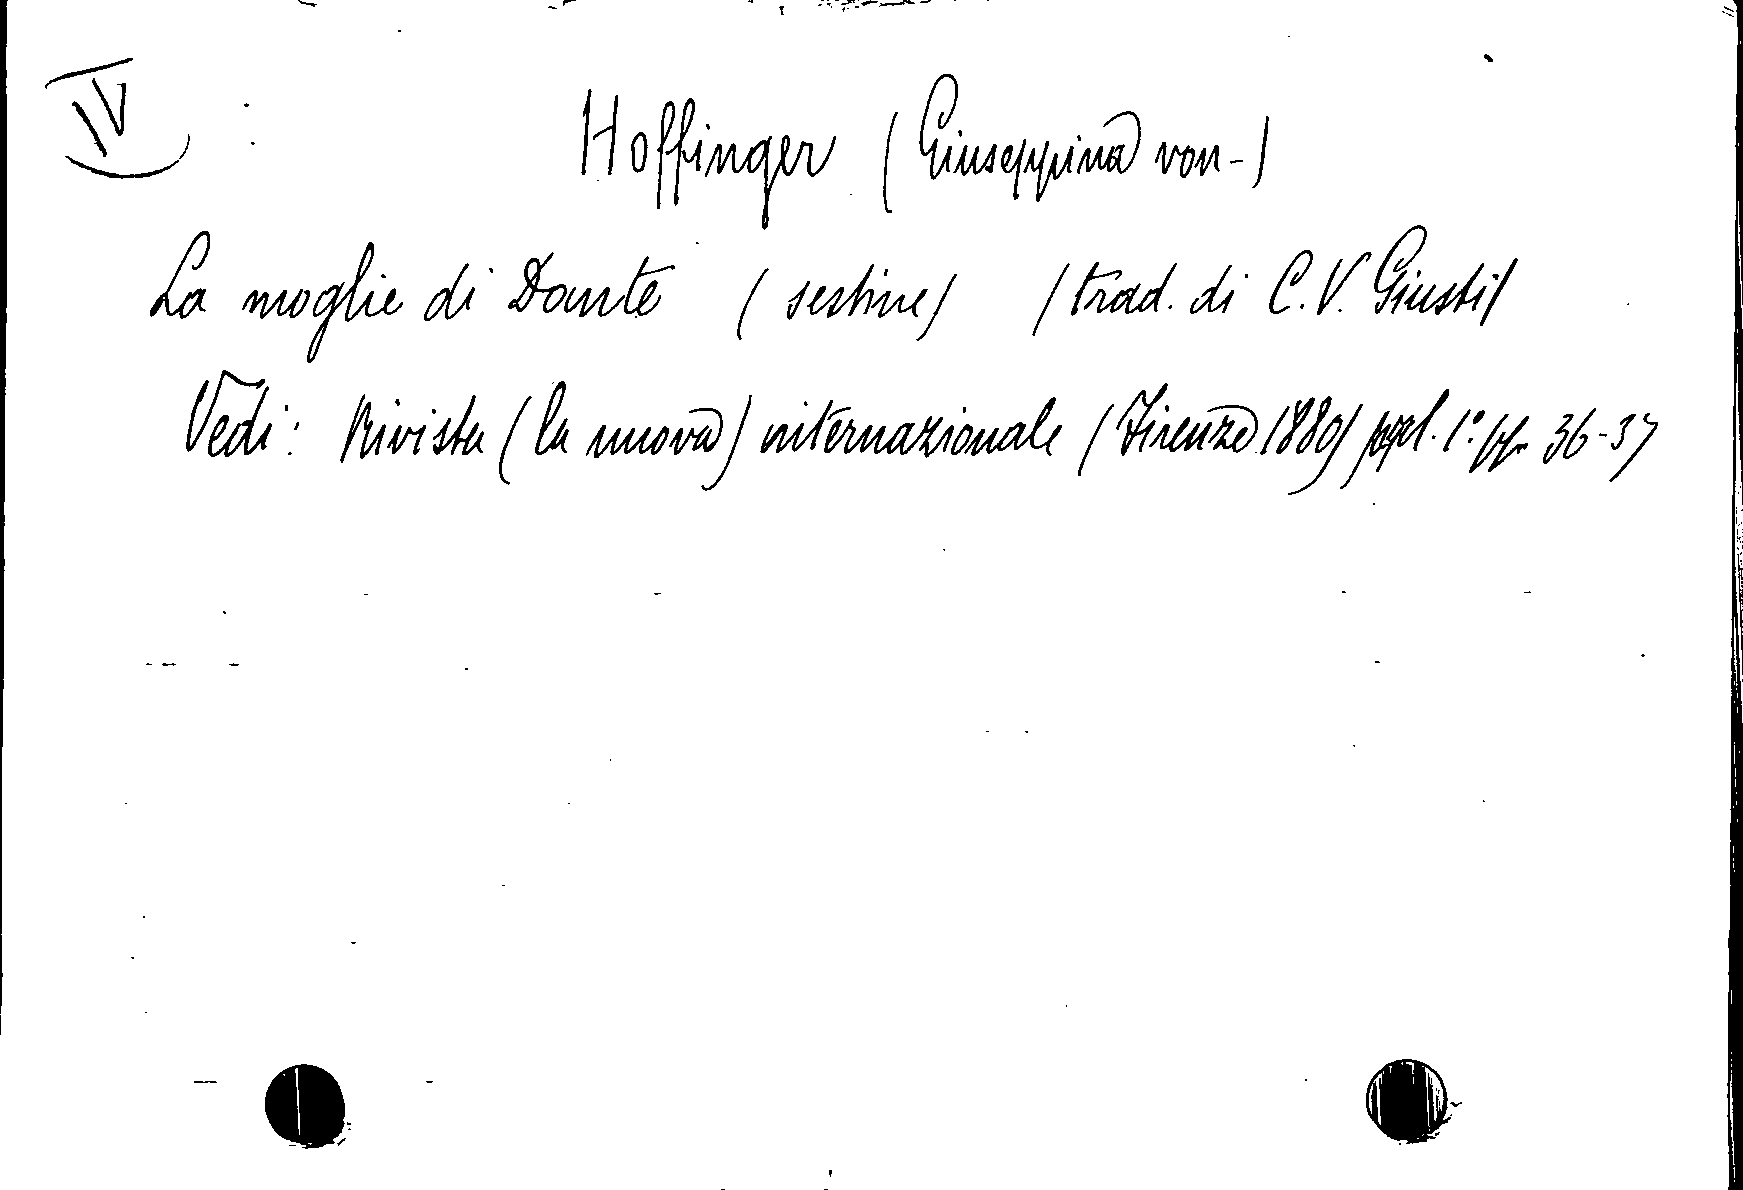 IV
Hoffinger (Giuseppina von-)
La moglie di Dante (sestine) (trad. di C. V. Giusti)
Vedi: Rivista (la nuova) internazionale (Firenze 1880) 1° pp. 36-37